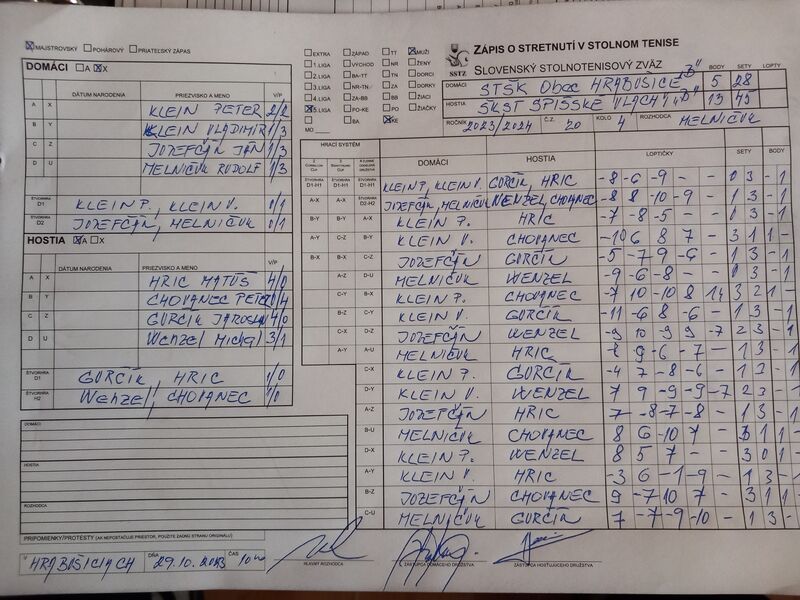 MAJSTROVSKÝ POHÁROVÝ PRIATEĽSKÝ ZÁPAS
DOMÁCI A X
DÁTUM NARODENIA PRIEZVISKO A MENO V/P
A X KLEIN PETER 2/2
B Y KLEIN VLADIMÍR 1/3
C Z JOZEFČÁN JÁN 1/3
D U MELNIČUK RUDOLF 1/3
ŠTVORHRA D1 KLEIN P., KLEIN V. 0/1
ŠTVORHRA D2 JOZEFČÁN, MELNIČUK 0/1
HOSTIA A X
DÁTUM NARODENIA PRIEZVISKO A MENO V/P
A X HRIC MATÚŠ 4/0
B Y CHOVANEC PETER 0/4
C Z GURČÍK JAROSLAV 4/0
D U Wenzel Michal 3/1
ŠTVORHRA D1 GURČÍK HRIC 1/0
ŠTVORHRA H2 Wenzel, CHOVANEC 1/0
DOMÁCI
HOSTIA
ROZHODCA
PRIPOMIENKY/PROTESTY (AK NEPOSTAČUJE PRIESTOR, POUŽITE ZADNÚ STRANU ORIGINÁLU)
V HRABUŠICIACH DŇA 29.10.2023 ČAS 10 00
HLAVNÝ ROZHODCA
ZÁSTUPCA DOMÁCEHO DRUŽSTVA
ZÁSTUPCA HOSŤUJÚCEHO DRUŽSTVA
EXTRA ZÁPAD TT MUŽI
1.LIGA VÝCHOD NR ŽENY
2.LIGA BA-TT TN DORCI
3.LIGA NR-TN ZA DORKY
4.LIGA ZA-BB BB ŽIACI
5.LIGA PO-KE PO ŽIAČKY
BA KE
MO
SSTZ
ZÁPIS O STRETNUTÍ V STOLNOM TENISE
SLOVENSKÝ STOLNOTENISOVÝ ZVÄZ
BODY SETY LOPTY
DOMÁCI STŠK Obec HRABUŠICE "B" 5 28
HOSTIA ŠKST SPIŠSKÉ VLACHY "B" 13 45
ROČNÍK 2023/2024 Č.Z. 20 KOLO 4 ROZHODCA MELNIČUK
HRACÍ SYSTÉM
DOMÁCI HOSTIA LOPTIČKY SETY BODY
ŠTVORHRA D1-H1 ŠTVORHRA D1-H1 ŠTVORHRA D1-H1 KLEIN P., KLEIN V. GURČÍK, HRIC -8 -6 -9 - - 0 3 - 1
A-X A-X ŠTVORHRA D2-H2 JOZEFČÁN, MELNIČUK WENZEL, CHOVANEC -8 8 -10 -9 - 1 3 - 1
B-Y B-Y A-X KLEIN P. HRIC -7 -8 -5 - - 0 3 - 1
A-Y C-Z B-Y KLEIN V. CHOVANEC -10 6 8 7 - 3 1 1 -
B-X B-X C-Z JOZEFČÁN GURČÍK -5 -7 9 -6 - 1 3 - 1
A-Z D-U MELNIČUK WENZEL -9 -6 -8 - - 0 3 - 1
C-Y B-X KLEIN P. CHOVANEC -7 10 -10 8 14 3 2 1 -
B-Z C-Y KLEIN V. GURČÍK -11 -6 8 -6 - 1 3 - 1
C-X D-Z JOZEFČÁN WENZEL -9 10 9 -9 -7 2 3 - 1
A-Y A-U MELNIČUK HRIC 8 -9 -6 -7 - 1 3 - 1
C-X KLEIN P. GURČÍK -4 7 -8 -6 - 1 3 - 1
D-Y KLEIN V. WENZEL 7 9 -9 -9 -7 2 3 - 1
A-Z JOZEFČÁN HRIC 7 -8 -7 -8 - 1 3 - 1
B-U MELNIČUK CHOVANEC 8 6 -10 7 - 3 1 1 -
D-X KLEIN P. WENZEL 8 5 7 - - 3 0 1 -
A-Y KLEIN V. HRIC -3 6 -1 -9 - 1 3 - 1
B-Z JOZEFČÁN CHOVANEC 9 -7 10 7 - 3 1 1
C-U MELNIČUK GURČÍK 7 -7 -9 -10 - 1 3 - 1